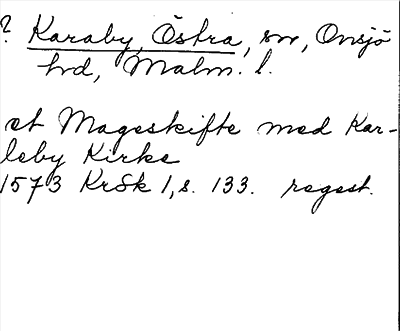 ? Karaby, Östra, sn, Onsjö
hd, Malm. l.
et Mageskifte med Kar-
leby Kirke
1573 KrSk 1, s. 133. regest.